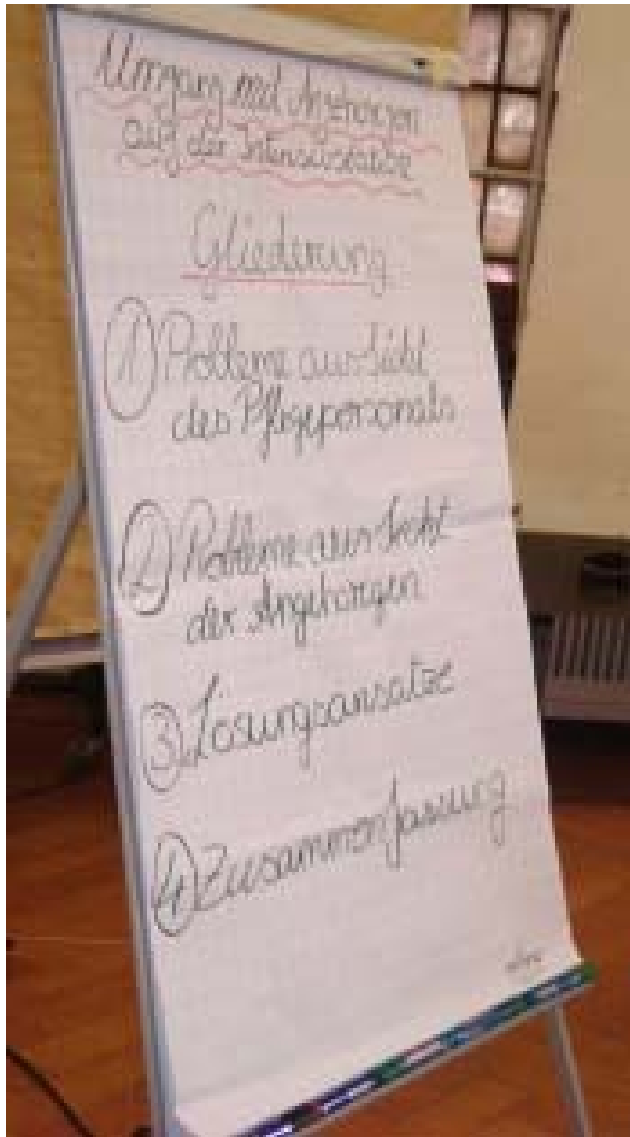 Umgang mit Angehörigen
auf der Intensivstation
Gliederung
1) Probleme aus Sicht
des Pflegepersonals
2) Probleme aus Sicht
der Angehörigen
3) Lösungsansätze
4) Zusammenfassung